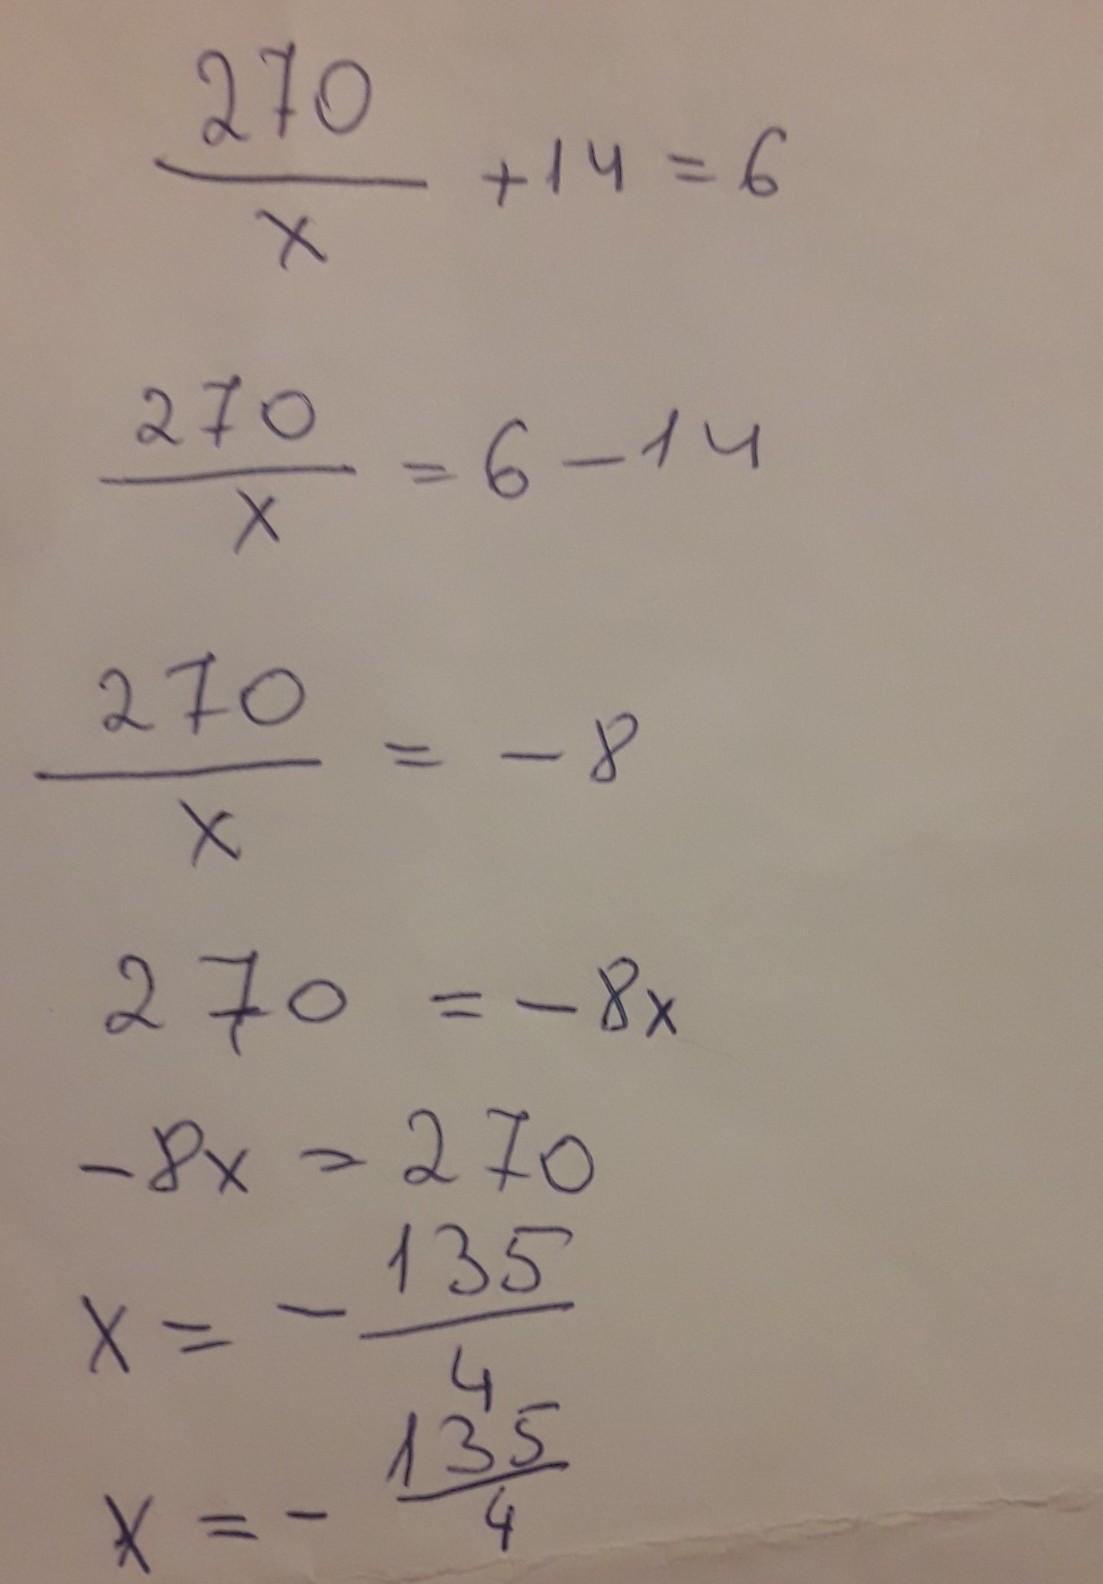 270/x + 14 = 6
270/x = 6 - 14
270/x = - 8
270 = - 8x
-8x = 270
x = - 135/4
x = - 135/4